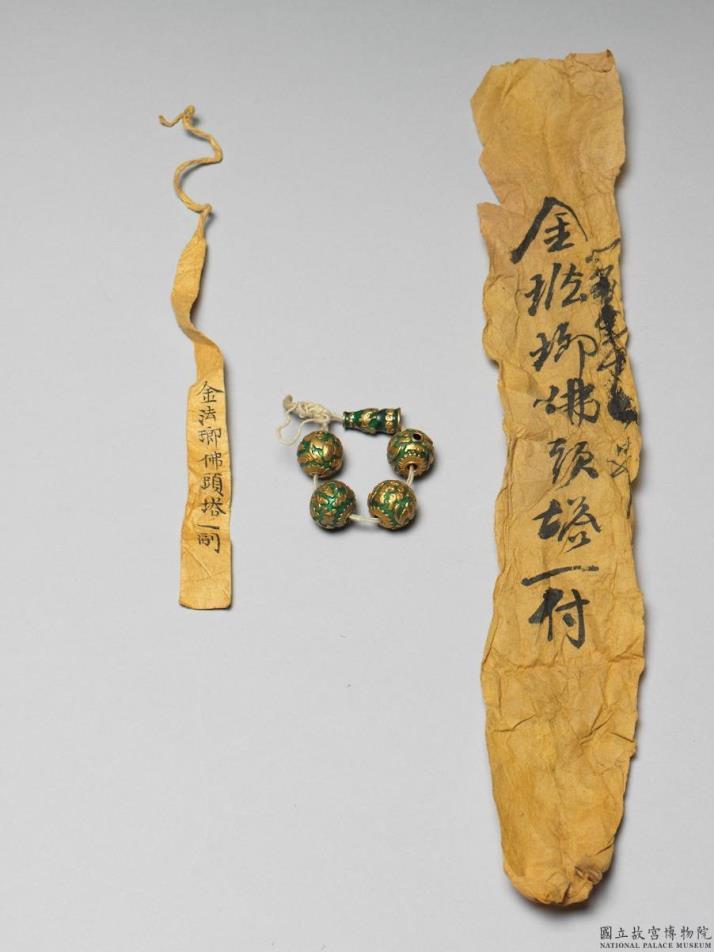 金法瑯佛頭塔一副
金琺瑯佛頭塔一付
國立故宮博物院
NATIONAL PALACE MUSEUM